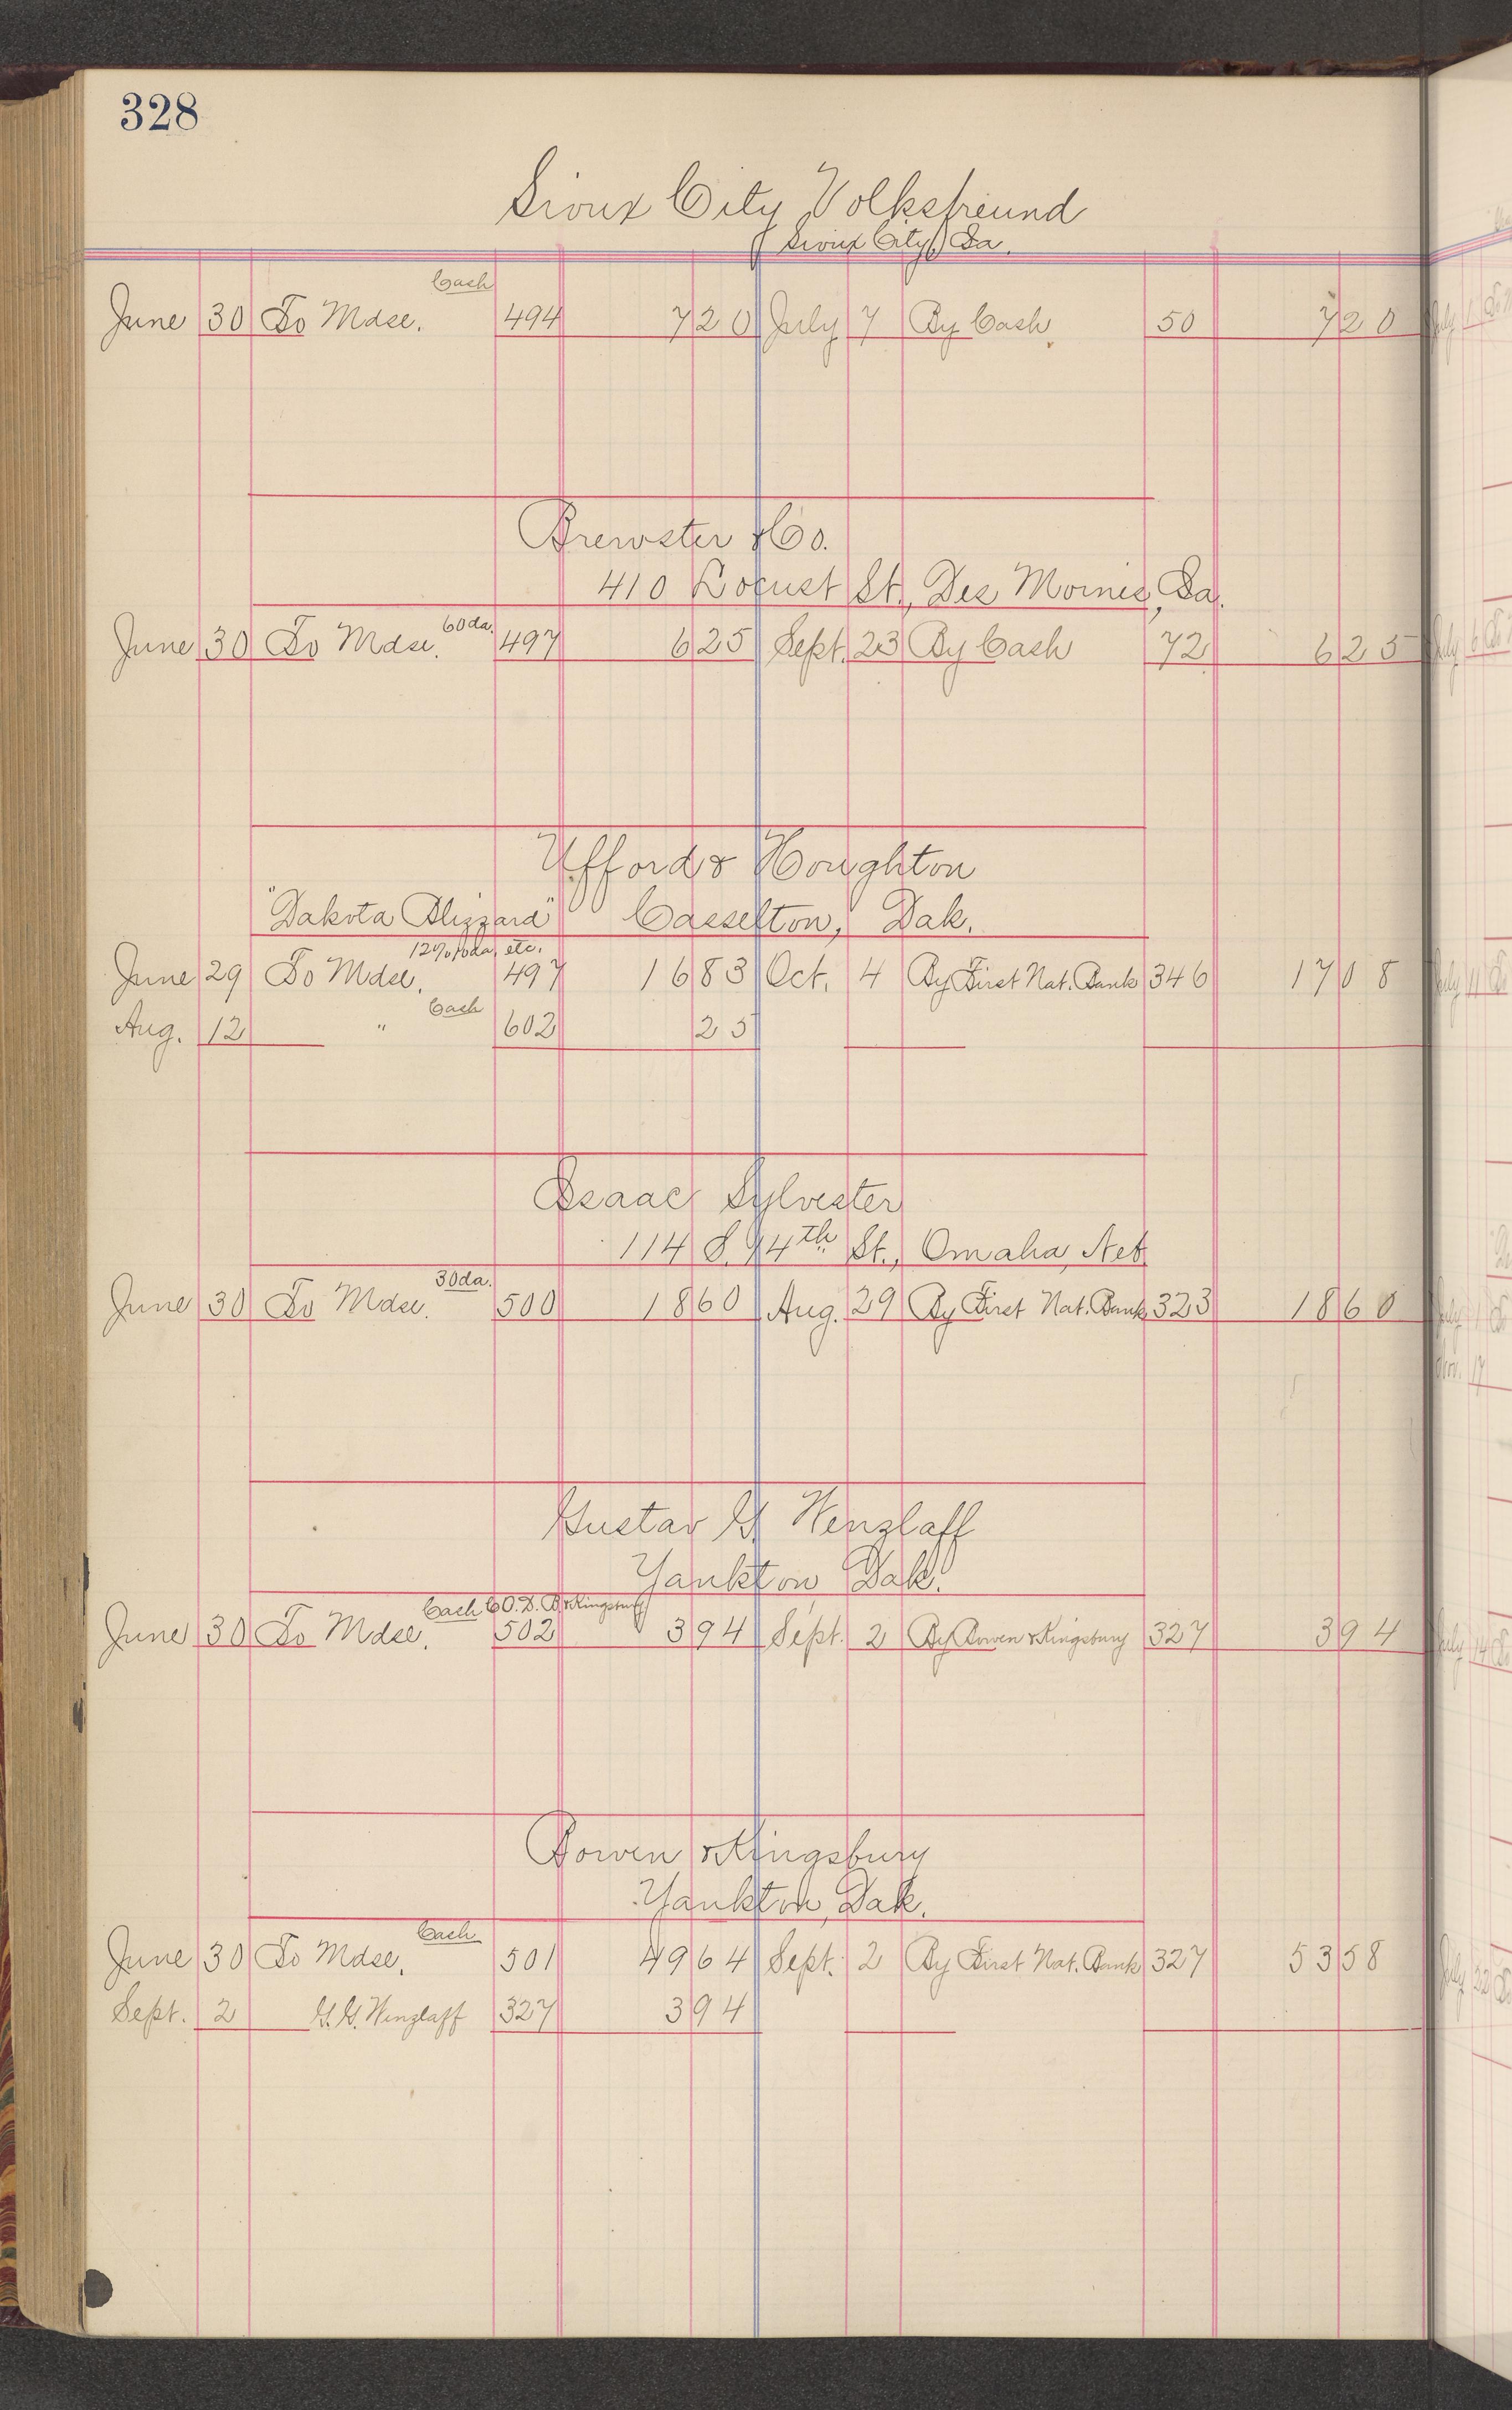 328
Sioux City Volksfreund
Sioux City, Ia.
Cash
June 30 To Mdse. 494 7 20 July 7 By Cash 50 7 20
Brewster & Co.
410 Locust St., Des Moines, Ia.
60 da.
June 30 To Mdse. 497 6 25 Sept. 23 By Cash 72 6 25
Ufford & Houghton
"Dakota Blizzard" Casselton, Dak.
etc.
June 29 To Mdse. 497 16 83 Oct. 4 By First Nat. Bank 346 17 08
Cash
Aug. 12 " 602 25
Isaac Sylvester
114 S. 14th St., Omaha, Neb.
30 da.
June 30 To Mdse. 500 18 60 Aug. 29 By First Nat. Bank 323 18 60
Gustav G. Wenzlaff
Yankton, Dak.
Cash C.O.D. B & Kingsbury
June 30 To Mdse. 502 3 94 Sept. 2 By Bowen & Kingsbury 327 3 94
Bowen & Kingsbury
Yankton, Dak.
Cash
June 30 To Mdse. 501 49 64 Sept. 2 By First Nat. Bank 327 53 58
Sept. 2 G. G. Wenzlaff 327 3 94